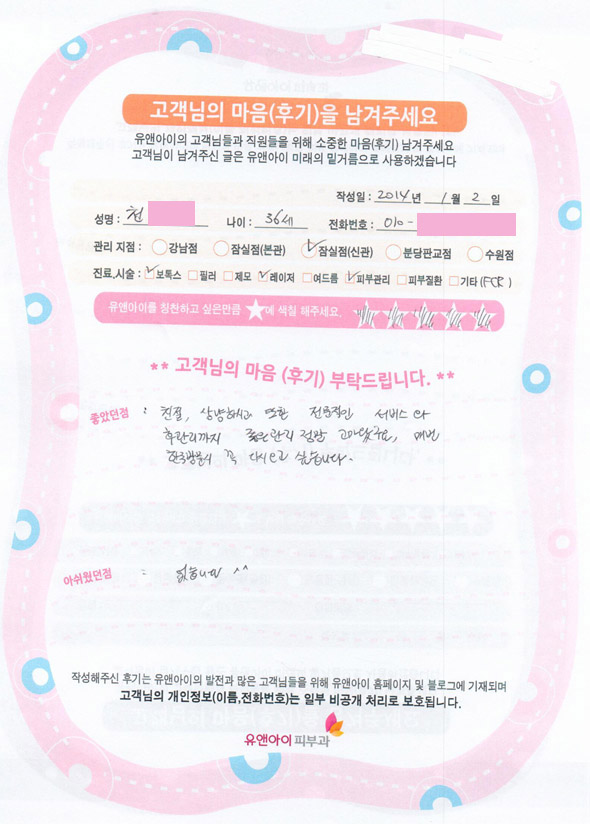 고객님의 마음(후기)을 남겨주세요
유앤아이의 고객님들과 직원들을 위해 소중한 마음(후기) 남겨주세요
고객님이 남겨주신 글은 유앤아이 미래의 밑거름으로 사용하겠습니다
작성일 : 2014년 1월 2일
성명 : 천 나이 : 36세 전화번호 : 010-
관리 지점 : 강남점 잠실점(본관) 잠실점(신관) 분당판교점 수원점
진료,시술 : 보톡스 필러 제모 레이저 여드름 피부관리 피부질환 기타 (FCR)
유앤아이를 칭찬하고 싶은만큼 ★에 색칠 해주세요.
** 고객님의 마음 (후기) 부탁드립니다. **
좋았던점 : 친절, 상냥하시고 또한 전문적인 서비스와
후관리까지 좋은관리 정말 고마웠구요, 매번
한국방문시 꼭 다시오고 싶습니다.
아쉬웠던점 : 없습니다 ^^
작성해주신 후기는 유앤아이의 발전과 많은 고객님들을 위해 유앤아이 홈페이지 및 블로그에 기재되며
고객님의 개인정보(이름,전화번호)는 일부 비공개 처리로 보호됩니다.
유앤아이 피부과